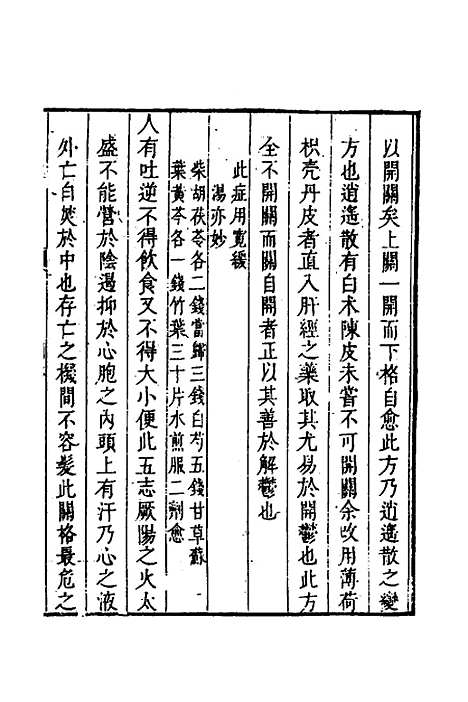 以開關矣上關一開而下格自愈此方乃逍遙散之變
方也逍遙散有白术陳皮未嘗不可開關余改用薄荷
枳壳丹皮者直入肝經之藥取其尤易於開鬱也此方
全不開關而關自開者正以其善於解鬱也
此症用寬緩
湯亦妙
柴胡茯苓各二錢當歸三錢白芍五錢甘草蘇
葉黃芩各一錢竹葉三十片水煎服二劑愈
人有吐逆不得飲食又不得大小便此五志厥陽之火太
盛不能營於陰遏抑於心胞之內頭上有汗乃心之液
外亡自焚於中也存亡之機間不容髮此關格最危之